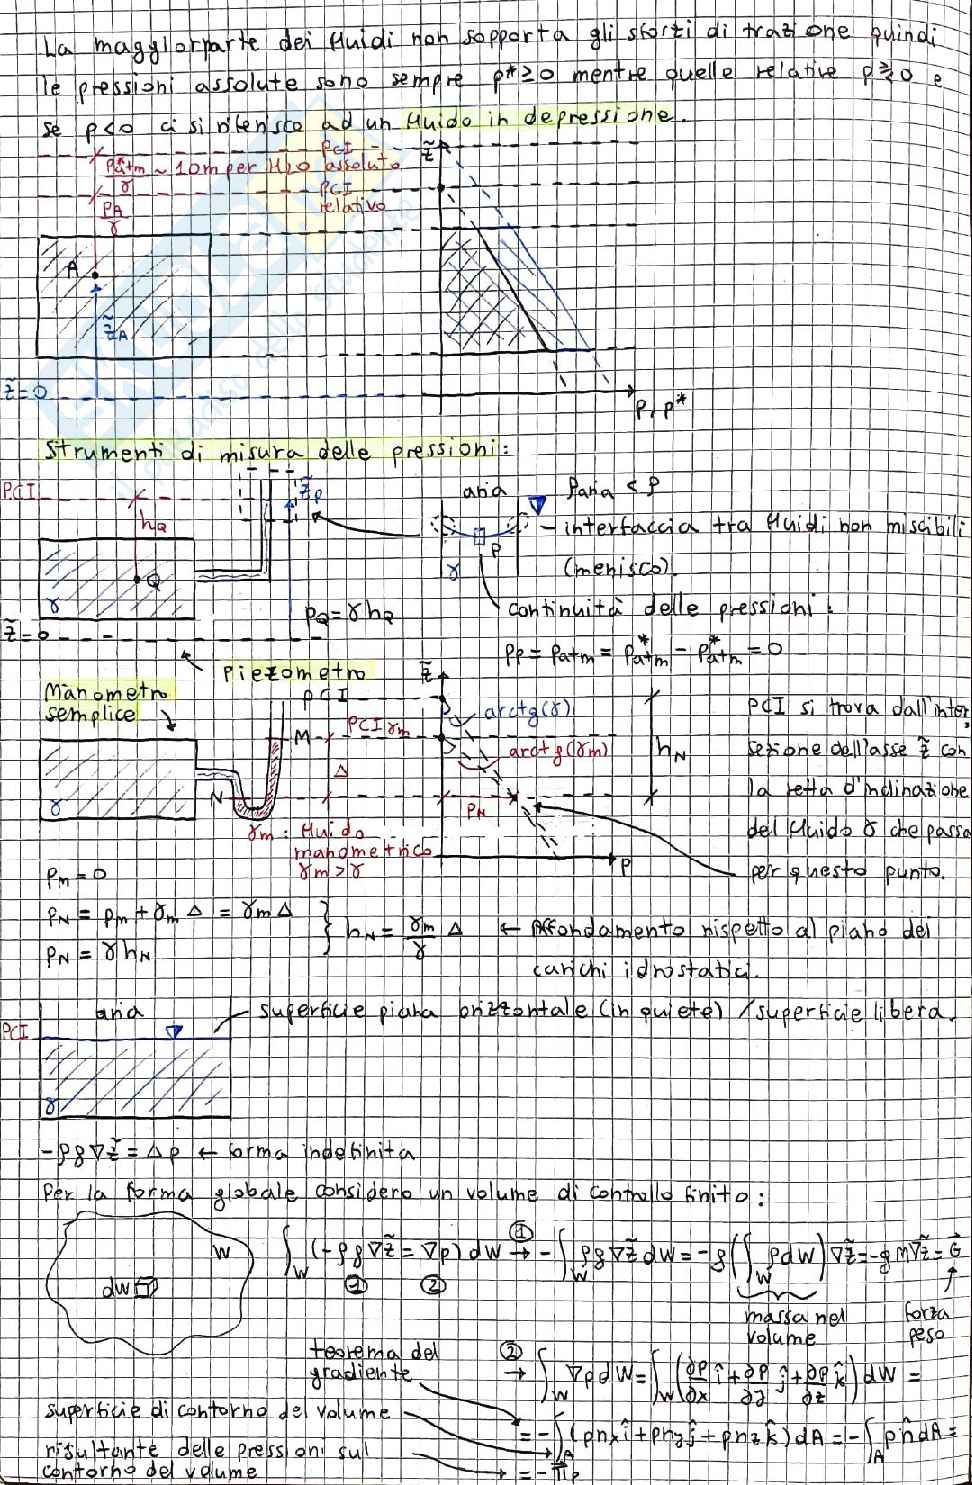 La maggiorparte dei fluidi non sopporta gli sforzi di trazione quindi
le pressioni assolute sono sempre p*≥0 mentre quelle relative p⪌0 e
se p<0 ci si riferisce ad un fluido in depressione.
PCI
z̃
p*atm/γ ~ 10m per H2O assoluto
PCI
relativo
pA/γ
A
z̃A
z̃=0
p, p*
Strumenti di misura delle pressioni:
PCI
z̃p
aria
ρaria < ρ
hQ
interfaccia tra fluidi non miscibili
P
Q
γ
(menisco)
γ
pQ=γhQ
continuità delle pressioni:
z̃=0
pp = patm = p*atm - p*atm = 0
Piezometro
z̃
Manometro
semplice
PCI
arctg(γ)
PCI si trova dall'inter
M
PCIγm
arctg(γm)
hN
sezione dell'asse z̃ con
Δ
la retta d'inclinazione
γ
N
pN
del fluido γ che passa
γm: fluido
manometrico
γm>γ
p
per questo punto.
pm=0
pN = pm+γm Δ = γm Δ
hN = γm/γ Δ ← Affondamento rispetto al piano dei
pN = γhN
carichi idrostatici.
aria
superficie piana orizzontale (in quiete) /superficie libera.
PCI
γ
-ρg∇z̃ = Δp ← forma indefinita
Per la forma globale considero un volume di controllo finito:
W
∫W (-ρg∇z̃ = ∇p) dW ①→ -∫W ρg∇z̃ dW = -g(∫W ρdW)∇z̃ = -gM∇z̃ = G⃗
dW
① ②
massa nel
volume
forza
peso
teorema del
gradiente
②→ ∫W ∇p dW = ∫W (∂p/∂x î + ∂p/∂y ĵ + ∂p/∂z k̂) dW =
superficie di contorno del volume
= -∫A (pnxî + pnyĵ + pnzk̂) dA = -∫A pn̂dA =
risultante delle pressioni sul
contorno del volume
= -π⃗p